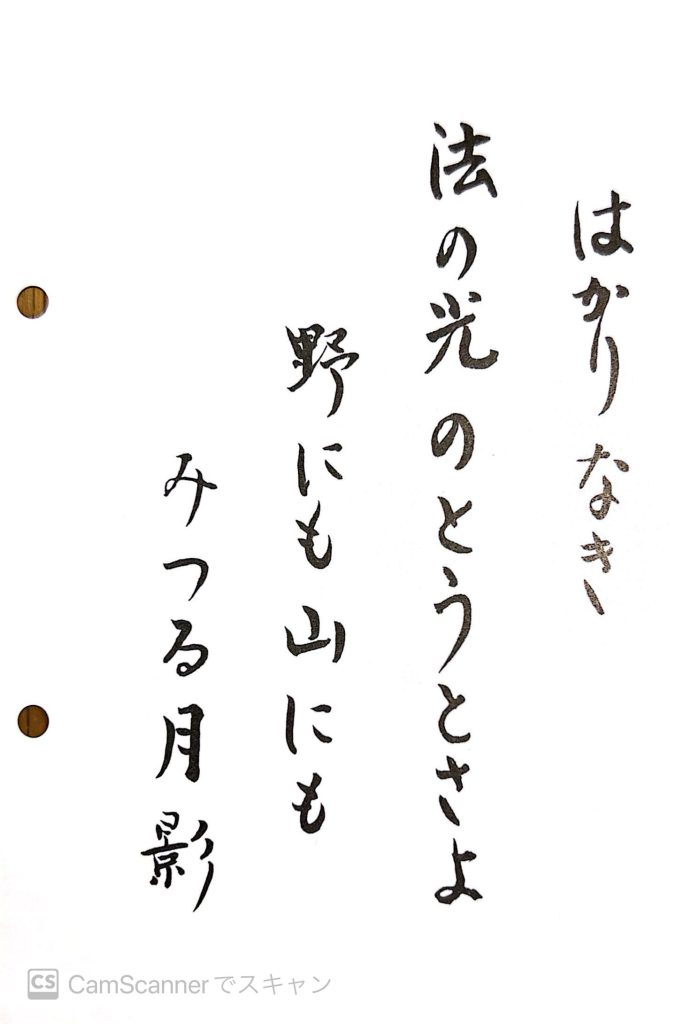 はかりなき
法の光のとうとさよ
野にも山にも
みつる月影
CS CamScannerでスキャン